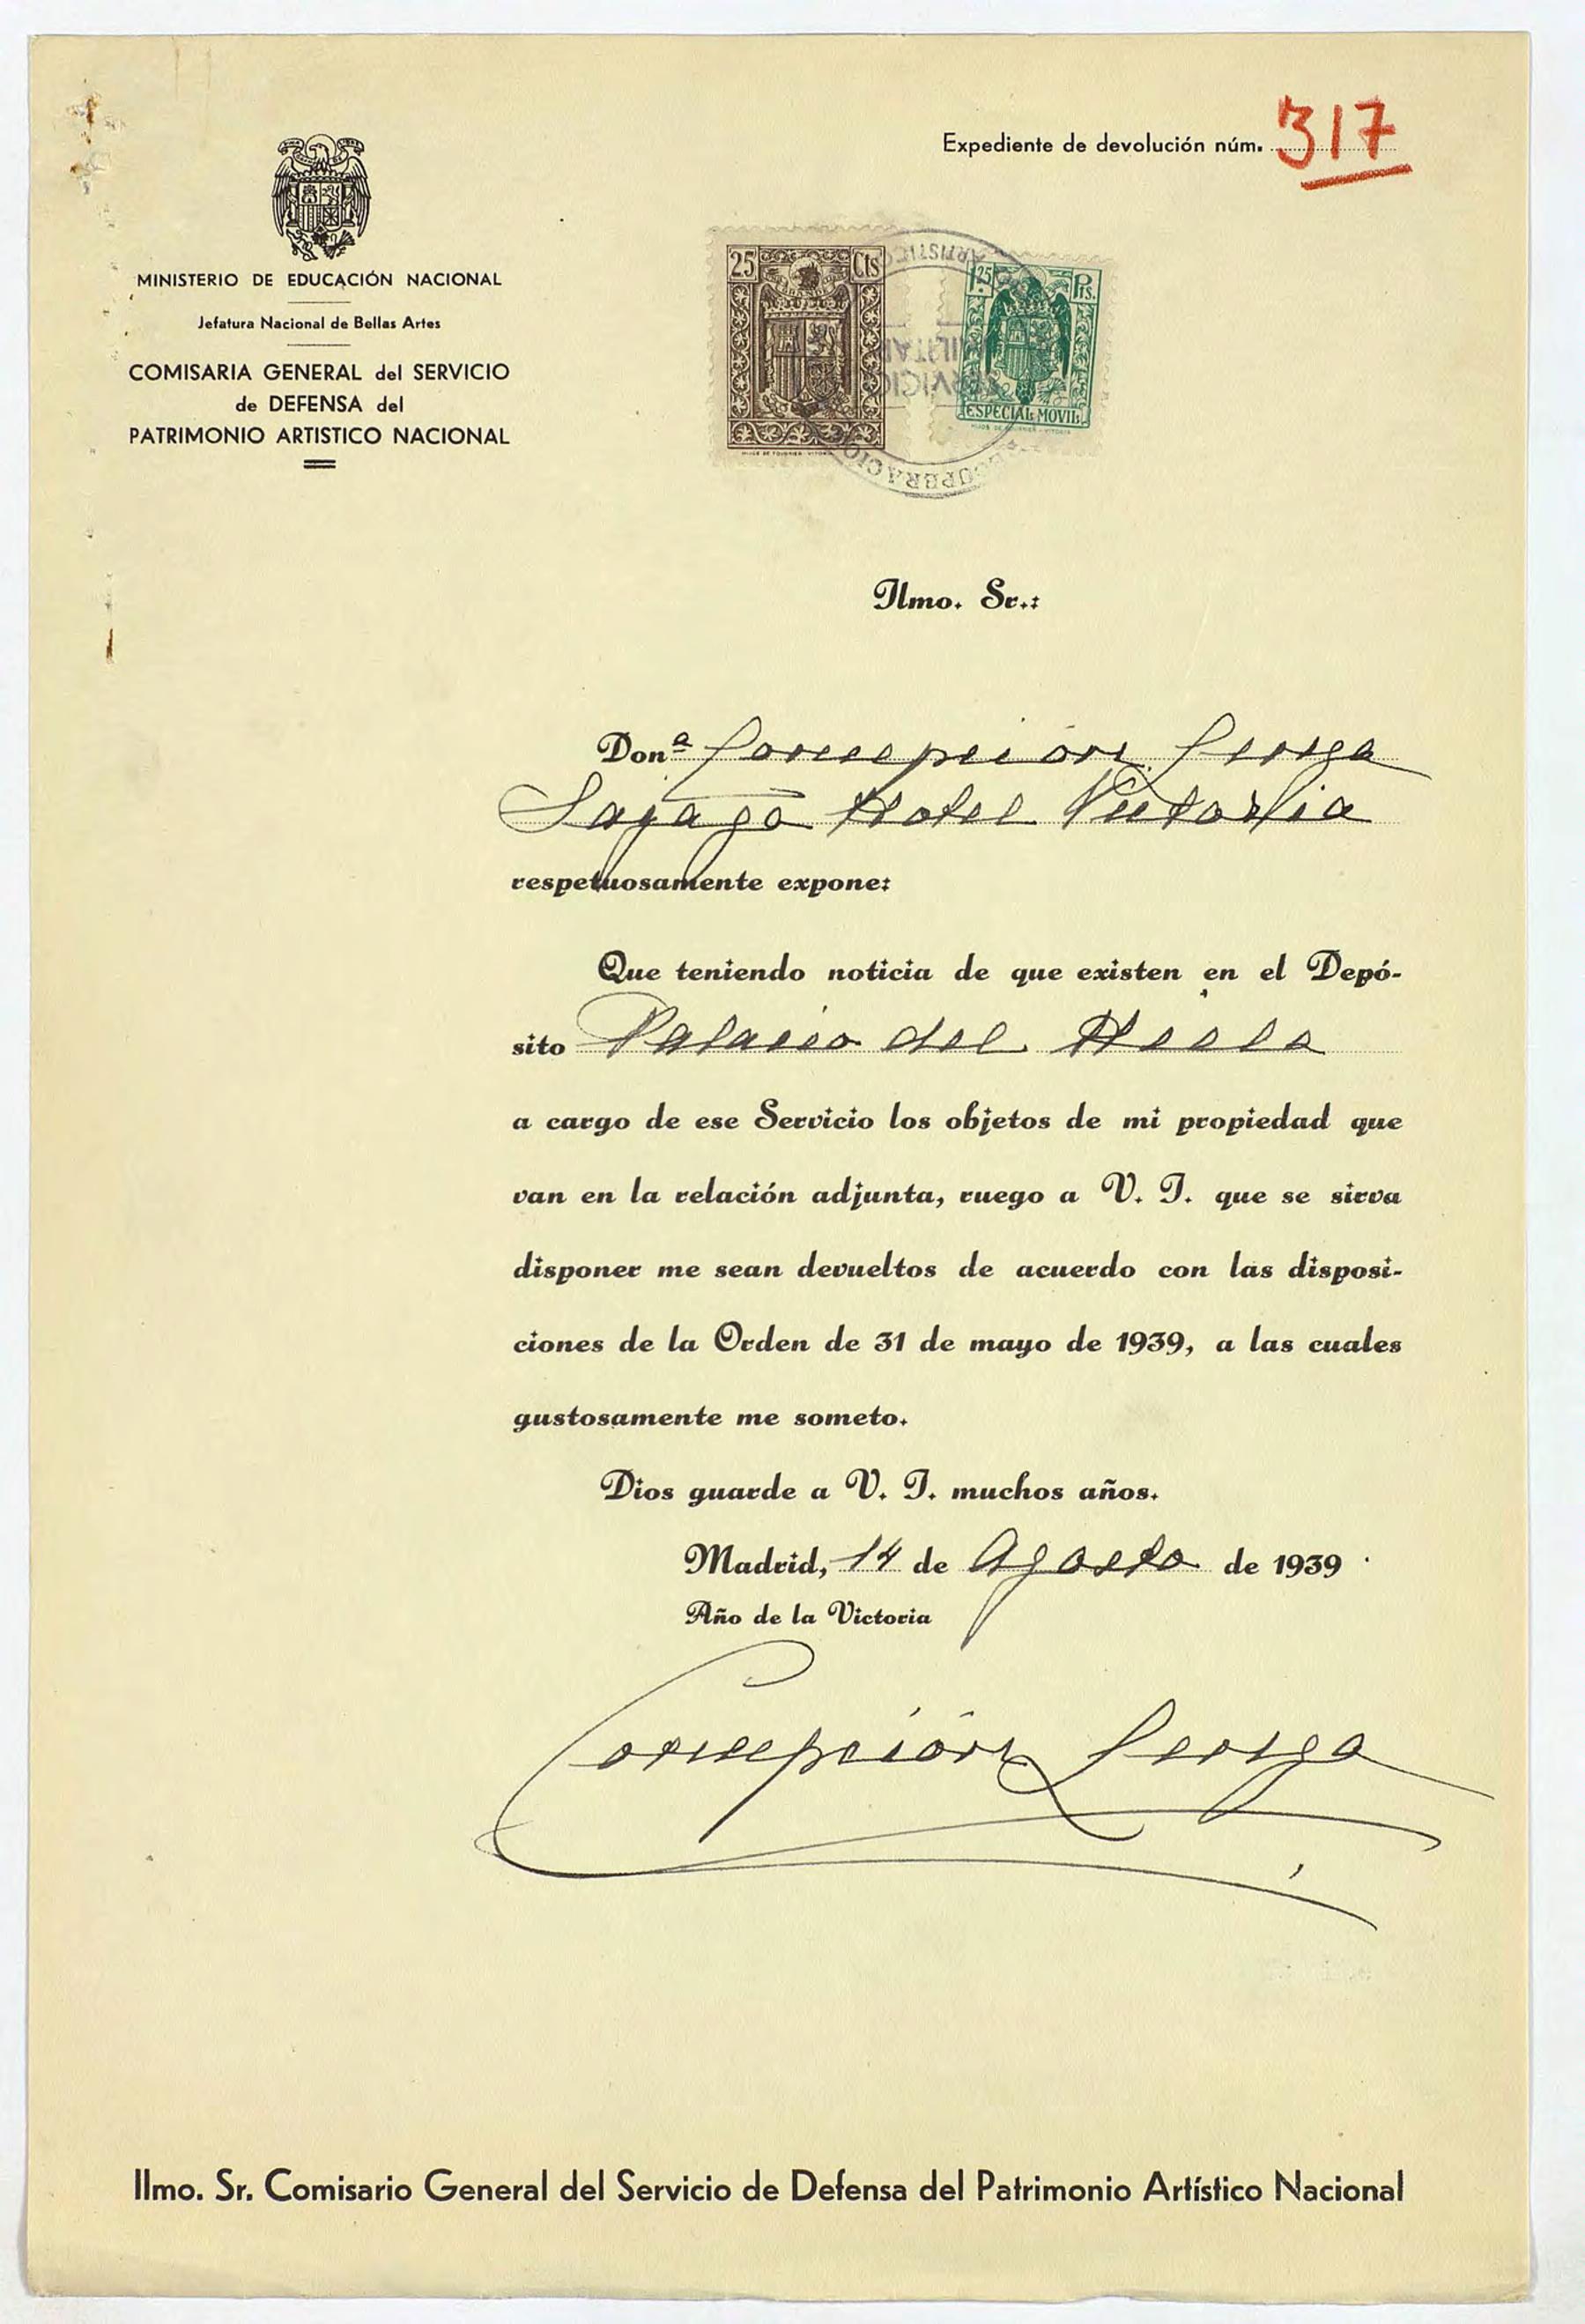 Expediente de devolución núm. 317
MINISTERIO DE EDUCACIÓN NACIONAL
Jefatura Nacional de Bellas Artes
COMISARIA GENERAL del SERVICIO
de DEFENSA del
PATRIMONIO ARTISTICO NACIONAL
25 Cts
HIJOS DE FOURNIER - VITORIA
Pts.
ESPECIAL MOVIL
HIJOS DE FOURNIER - VITORIA
ARTISTICO
MILITAR
SERVICIO
RECUPERACIO
Ilmo. Sr.:
Donª Concepción
Sayago Hotel Victoria
respetuosamente expone:
Que teniendo noticia de que existen en el Depó-
sito Palacio del
a cargo de ese Servicio los objetos de mi propiedad que
van en la relación adjunta, ruego a V. I. que se sirva
disponer me sean devueltos de acuerdo con las disposi-
ciones de la Orden de 31 de mayo de 1939, a las cuales
gustosamente me someto.
Dios guarde a V. I. muchos años.
Madrid, 14 de Agosto de 1939
Año de la Victoria
Concepción
Ilmo. Sr. Comisario General del Servicio de Defensa del Patrimonio Artístico Nacional